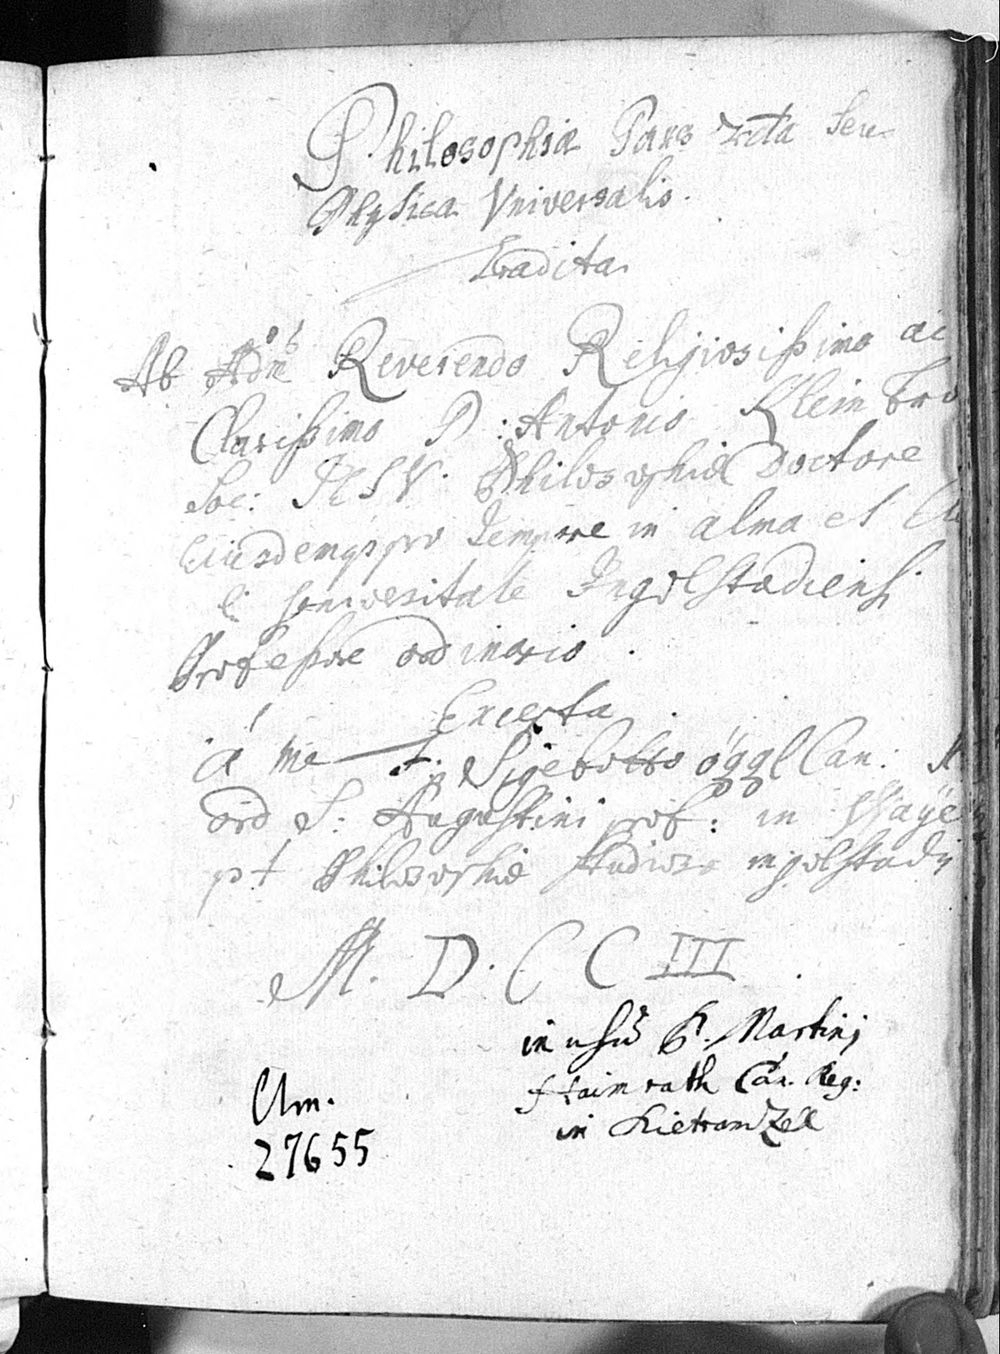 Philosophiæ Pars 2da seu
Physica Universalis.
Tradita
Ab Admo Reverendo Religiosissimo ac
Clarissimo P: Antonio Klein
Soc: JESV Philosophiæ Doctore
Eiusdemq; pro tempore in alma et
Universitate Ingolstadiensi
Professore ordinario.
Excepta
à me F. Sigebotto öggl Can: R
ord S. Augustini prof: in
p.t Philosophiæ studioso ingolstadij
M. D. C C III.
in usu F. Martinj
Haimrath Can. Reg:
in Dietramzell
Clm.
27655